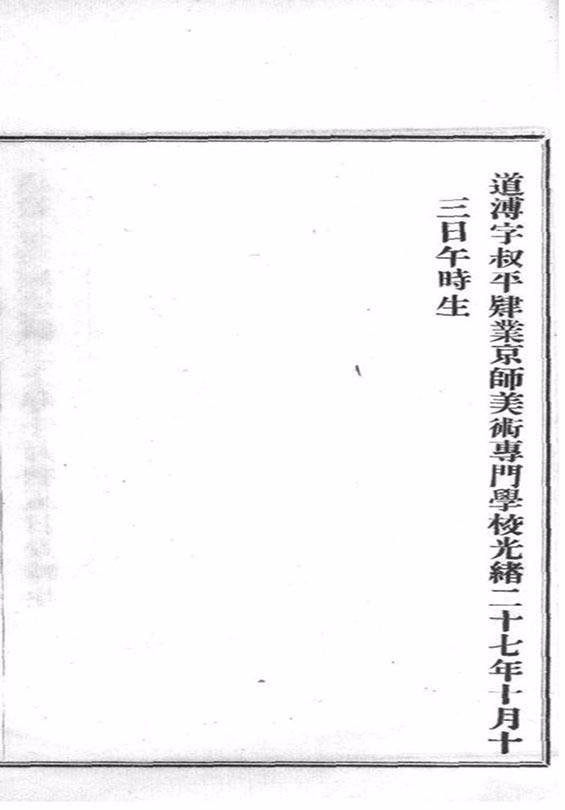 道溥字叔平肄業京師美術專門學校光緒二十七年十月十
三日午時生